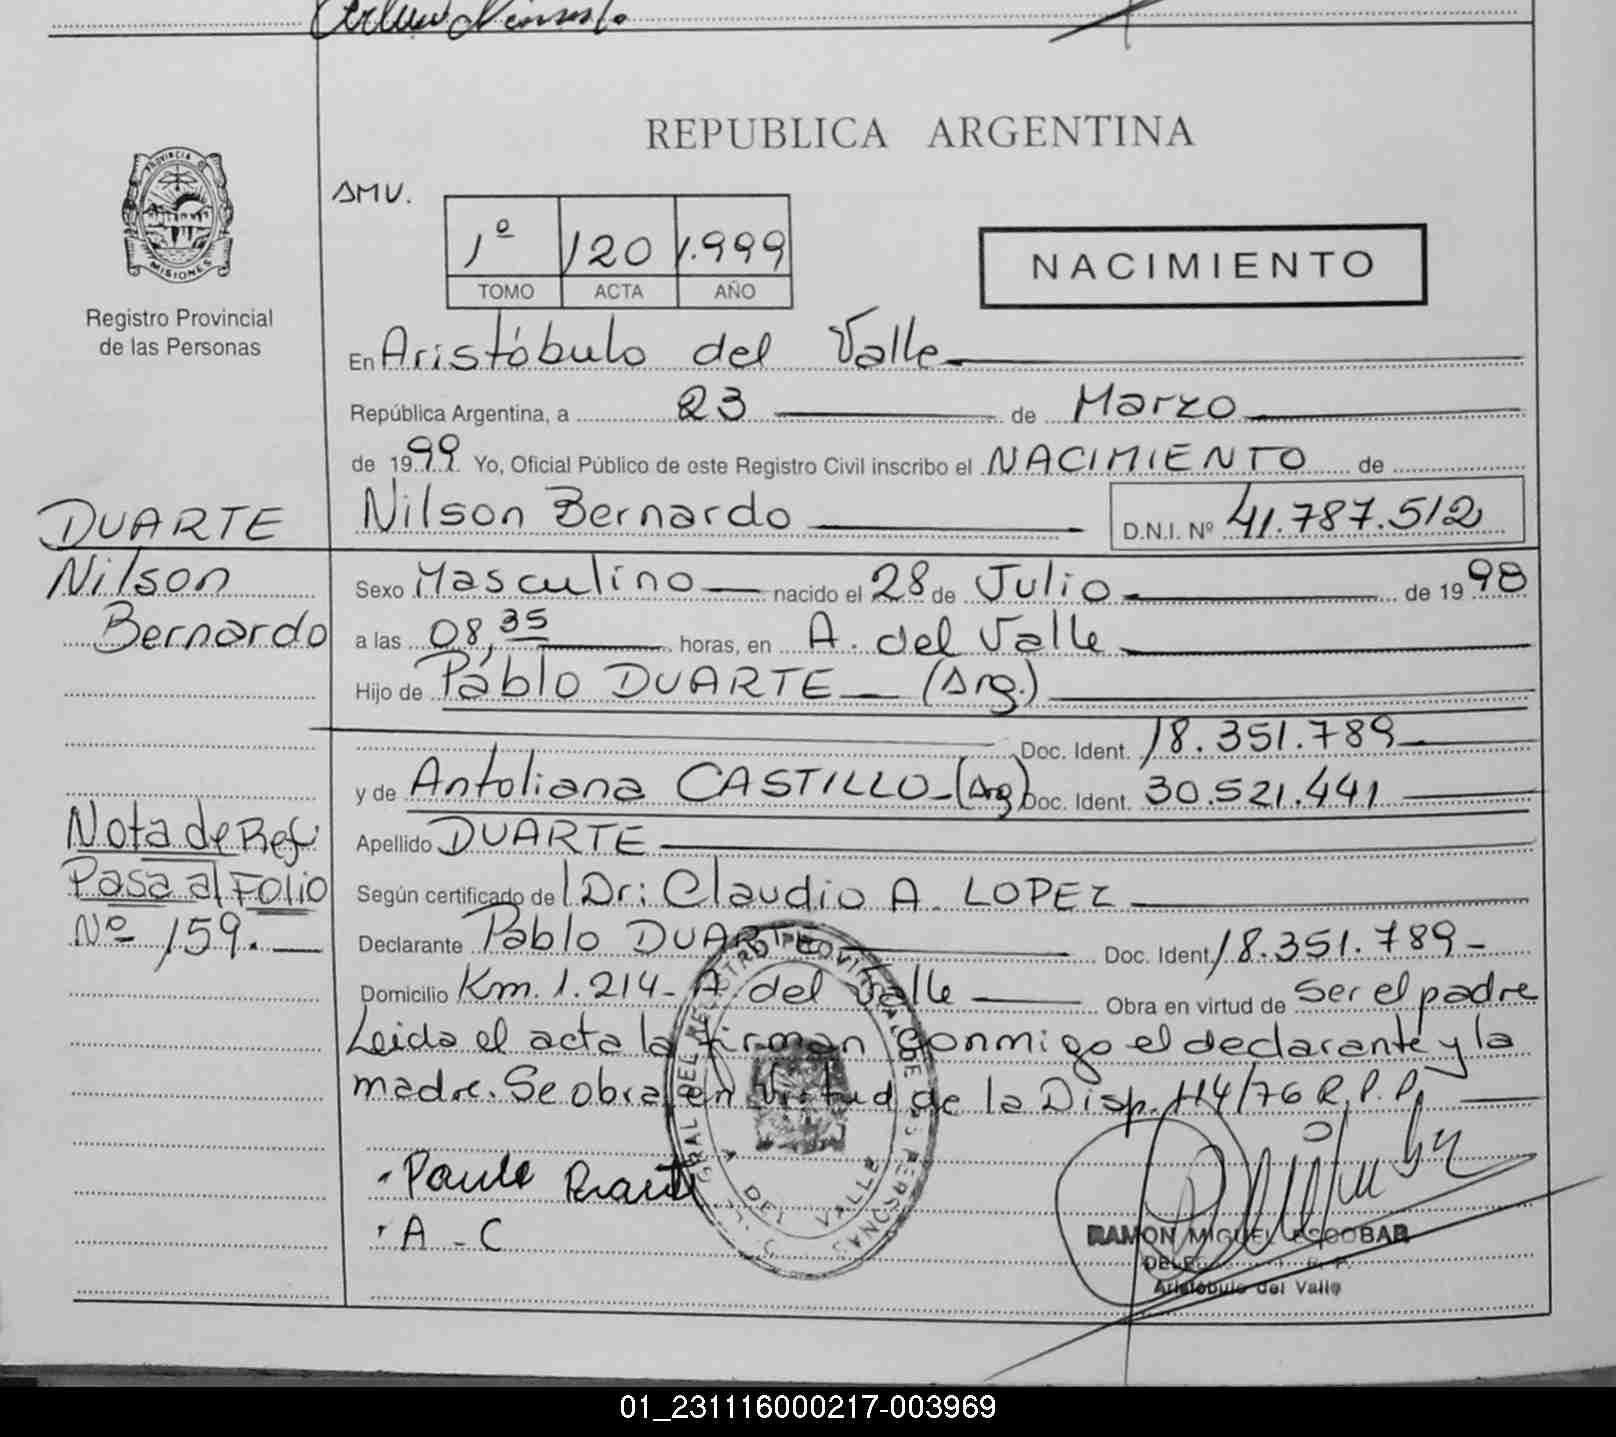 REPUBLICA ARGENTINA
PROVINCIA D
MISIONES
Registro Provincial
de las Personas
SMV.
1º 120 1.999
TOMO ACTA AÑO
NACIMIENTO
En Aristóbulo del Valle
República Argentina, a 23 de Marzo
de 1999 Yo, Oficial Público de este Registro Civil inscribo el NACIMIENTO de
Nilson Bernardo D.N.I. Nº 41.787.512
DUARTE
Nilson
Bernardo
Sexo Masculino nacido el 28 de Julio de 1998
a las 08,35 horas, en A. del Valle
Hijo de Pablo DUARTE (Arg.)
Doc. Ident. 18.351.789
y de Antoliana CASTILLO (Arg) Doc. Ident. 30.521.441
Apellido DUARTE
Según certificado de Dr: Claudio A. LOPEZ
Declarante Pablo DUARTE Doc. Ident. 18.351.789
Domicilio Km. 1.214 - A. del Valle Obra en virtud de Ser el padre
Leida el acta la firman conmigo el declarante y la
madre. Se obra en Virtud de la Disp. 114/76 R.P.P.
Nota de Ref
Pasa al FOLIO
Nº 159.
A - C
DEL VALLE
RAMON MIGUEL ESCOBAR
Aristóbulo del Valle
01_231116000217-003969